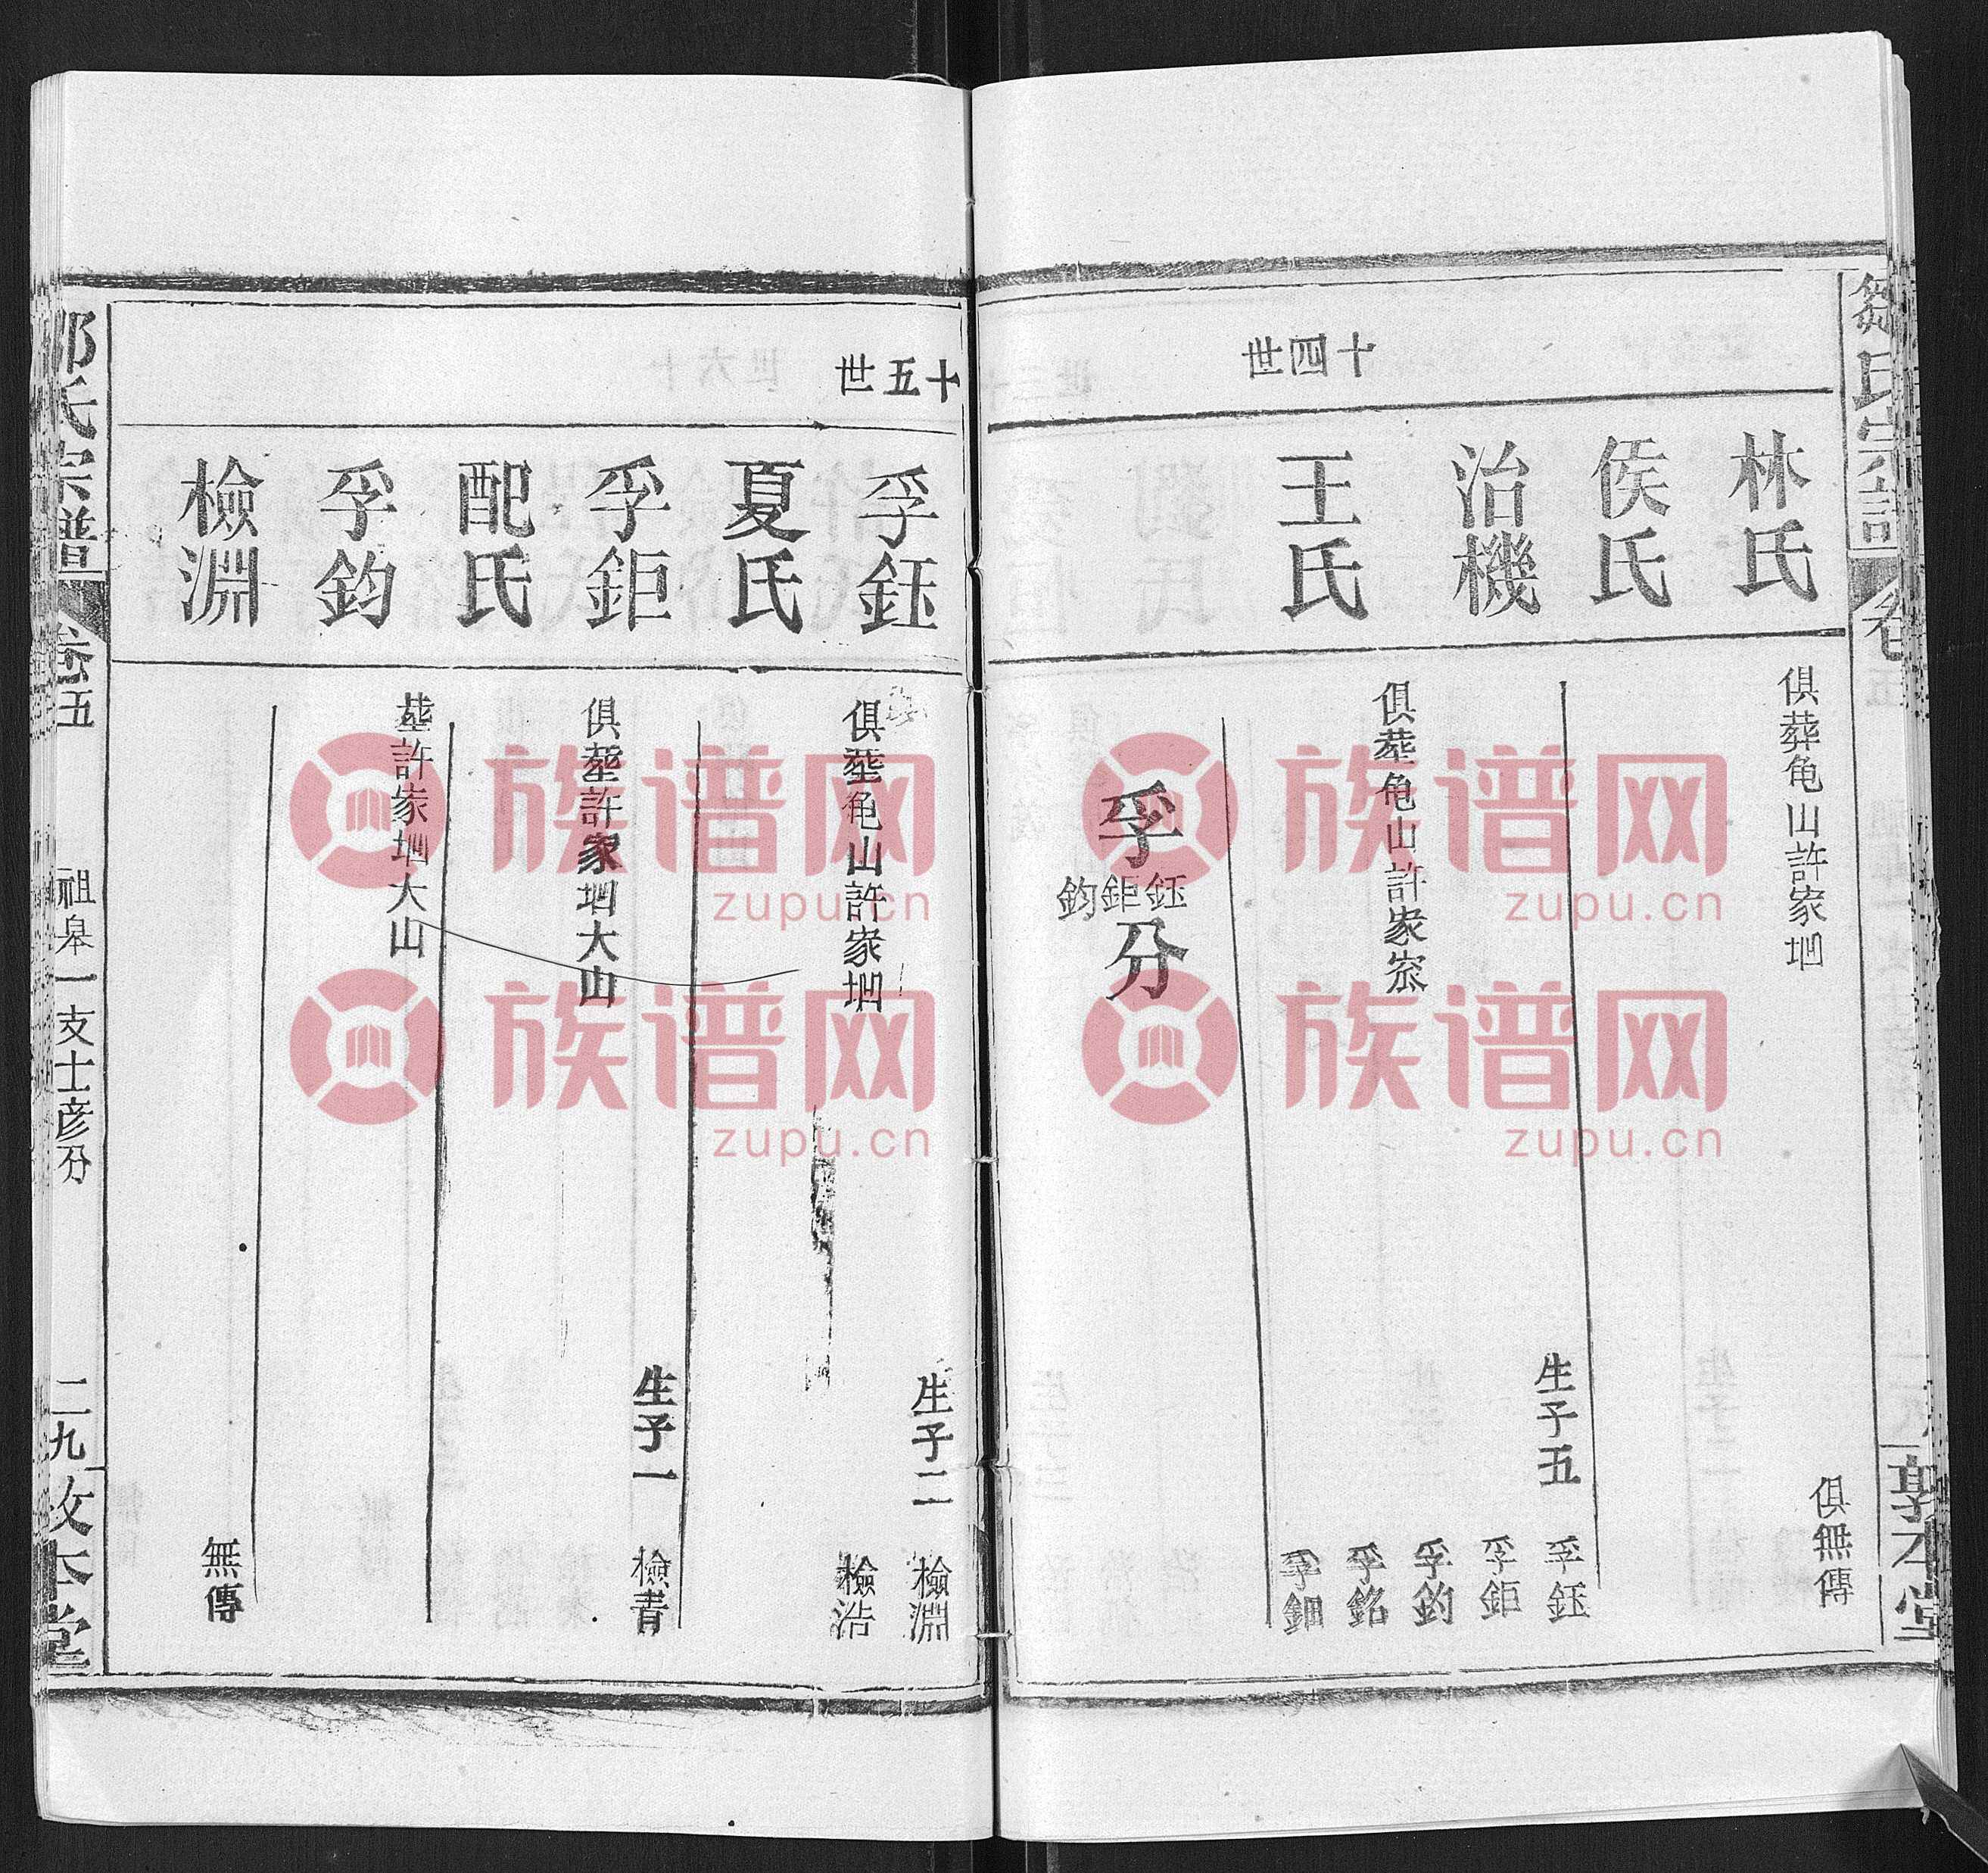 氏宗譜
卷五
敦本堂
林氏
俱葬龟山許家垇
俱無傳
侯氏
十四世
治機
生子五
孚鈺
孚鉅
孚鈞
孚銘
孚鈿
王氏
俱塟龟山許家
孚鈺鉅鈞分
十五世
孚鈺
俱塟龟山許家垇
生子二
檢淵
檢浩
夏氏
孚鉅
俱塟許家垇大山
生子一
檢青
配氏
孚鈞
塟許家垇大山
檢淵
無傳
氏宗譜
卷五
祖皋一支士彦分
二九
敦本堂
族谱网
zupu.cn
族谱网
zupu.cn
族谱网
zupu.cn
族谱网
zupu.cn